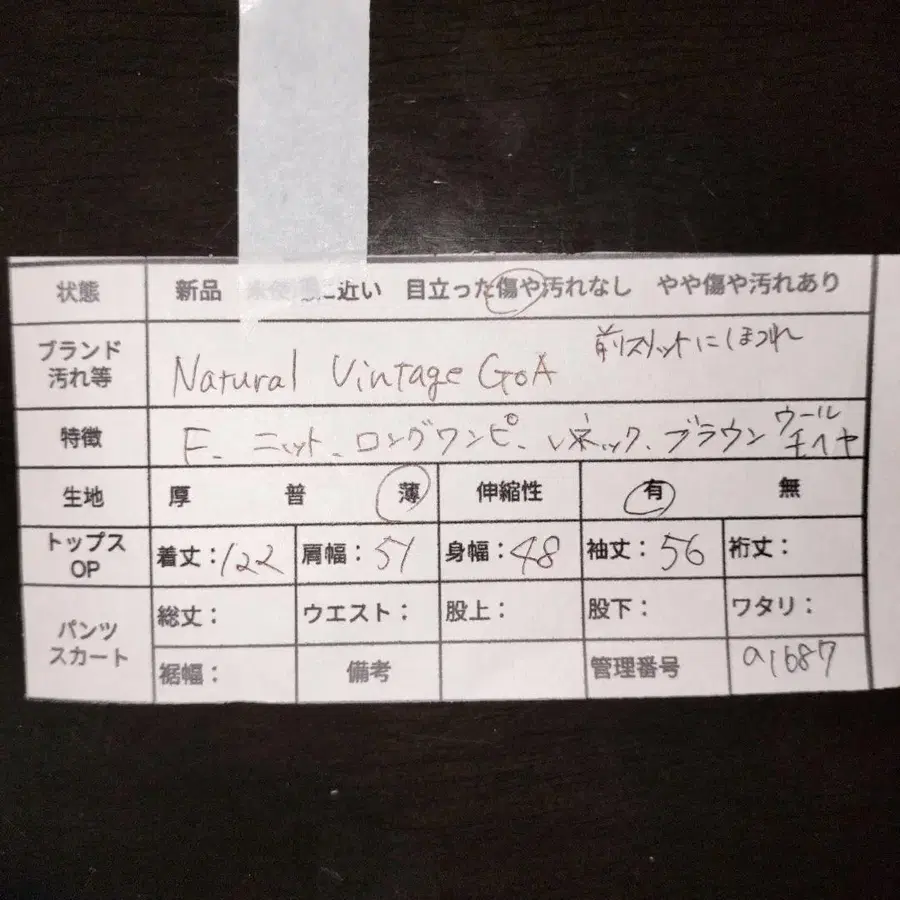 状態 新品 に近い 目立った傷や汚れなし やや傷や汚れあり
ブランド 汚れ等 Natural Vintage GoA 前スリットにほつれ
特徴 F、ニット、ロングワンピ、Vネック、ブラウン ウール
生地 厚 普 薄 伸縮性 有 無
トップス OP 着丈：122 肩幅：51 身幅：48 袖丈：56 裄丈：
パンツ スカート 総丈： ウエスト： 股上： 股下： ワタリ：
裾幅： 備考 管理番号 a1687